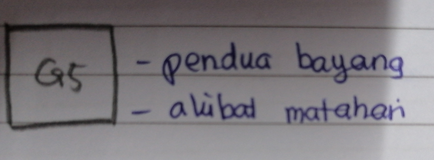 G5
- pendua bayang
- akibat matahari